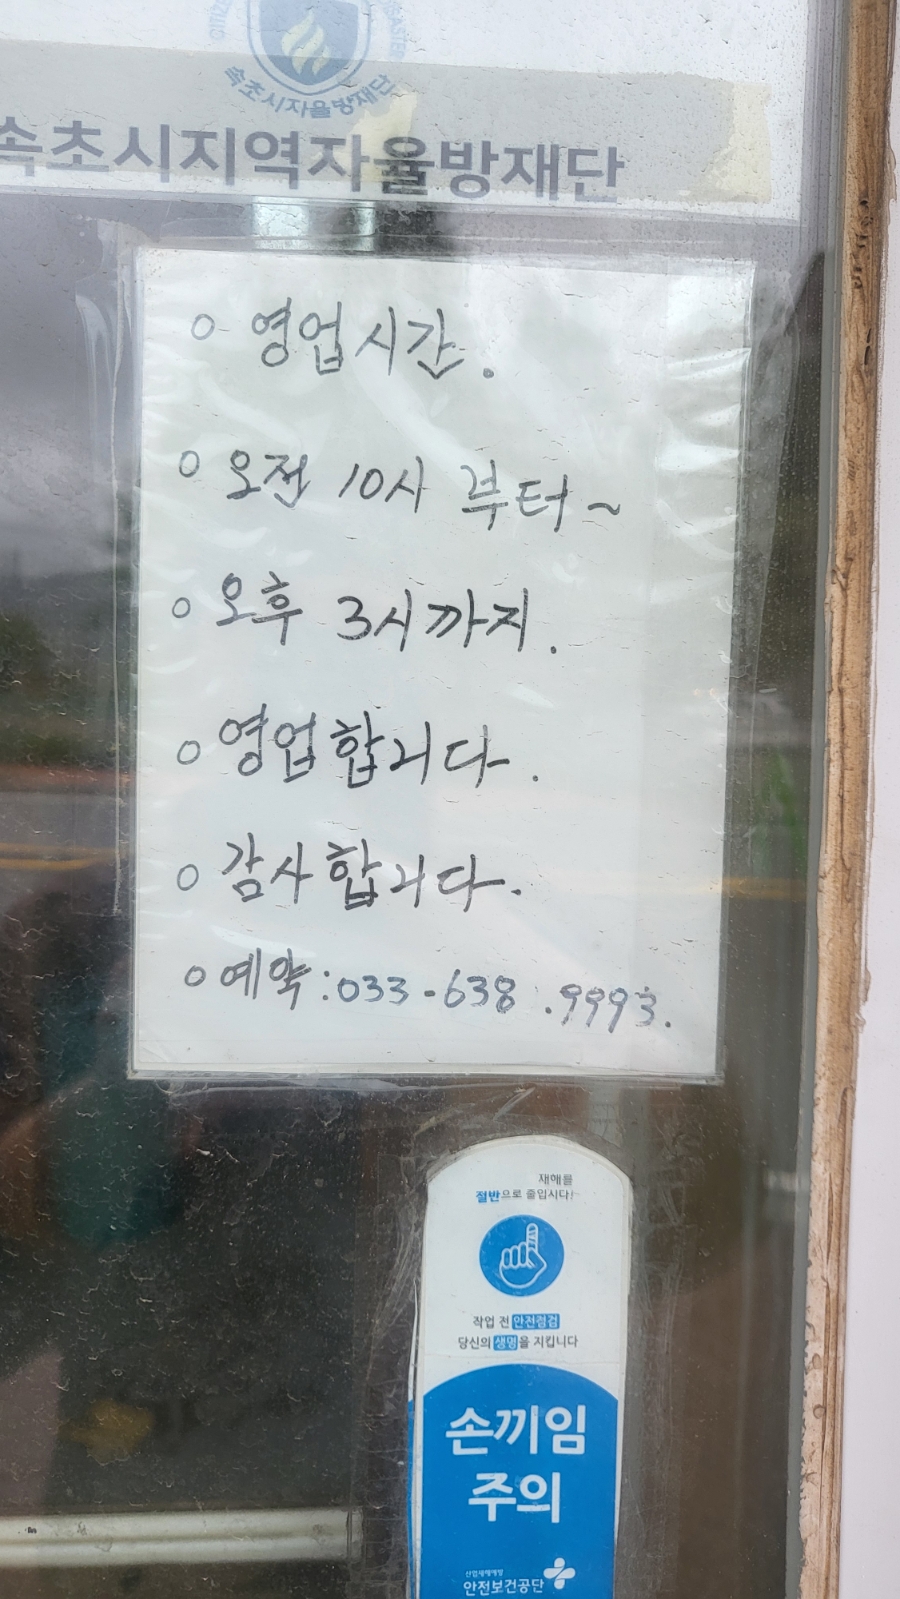 속초시자율방재단
속초시지역자율방재단
○ 영업시간.
○ 오전 10시 부터~
○ 오후 3시까지.
○ 영업합니다.
○ 감사합니다.
○ 예약:033-638.9993.
재해를
절반으로 줄입시다!
작업 전 안전점검
당신의 생명을 지킵니다
손끼임
주의
산업재해예방
안전보건공단